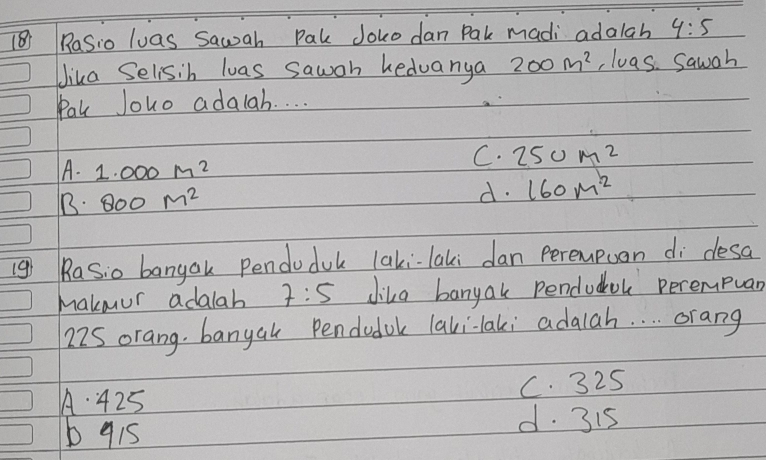 18 Rasio luas sawah Pak Joko dan Pak madi adalah 4:5
Jika Selisih luas sawah keduanya 200 m², luas sawah
Pak Joko adalah....
A. 1.000 m² C. 250 m²
B. 800 m² d. 160 m²
19 Rasio banyak Penduduk laki-laki dan Perempuan di desa
Makmur adalah 7:5 Jika banyak Penduduk Perempuan
225 orang. banyak Penduduk laki-laki adalah .... orang
A. 425 C. 325
b 415 d. 315